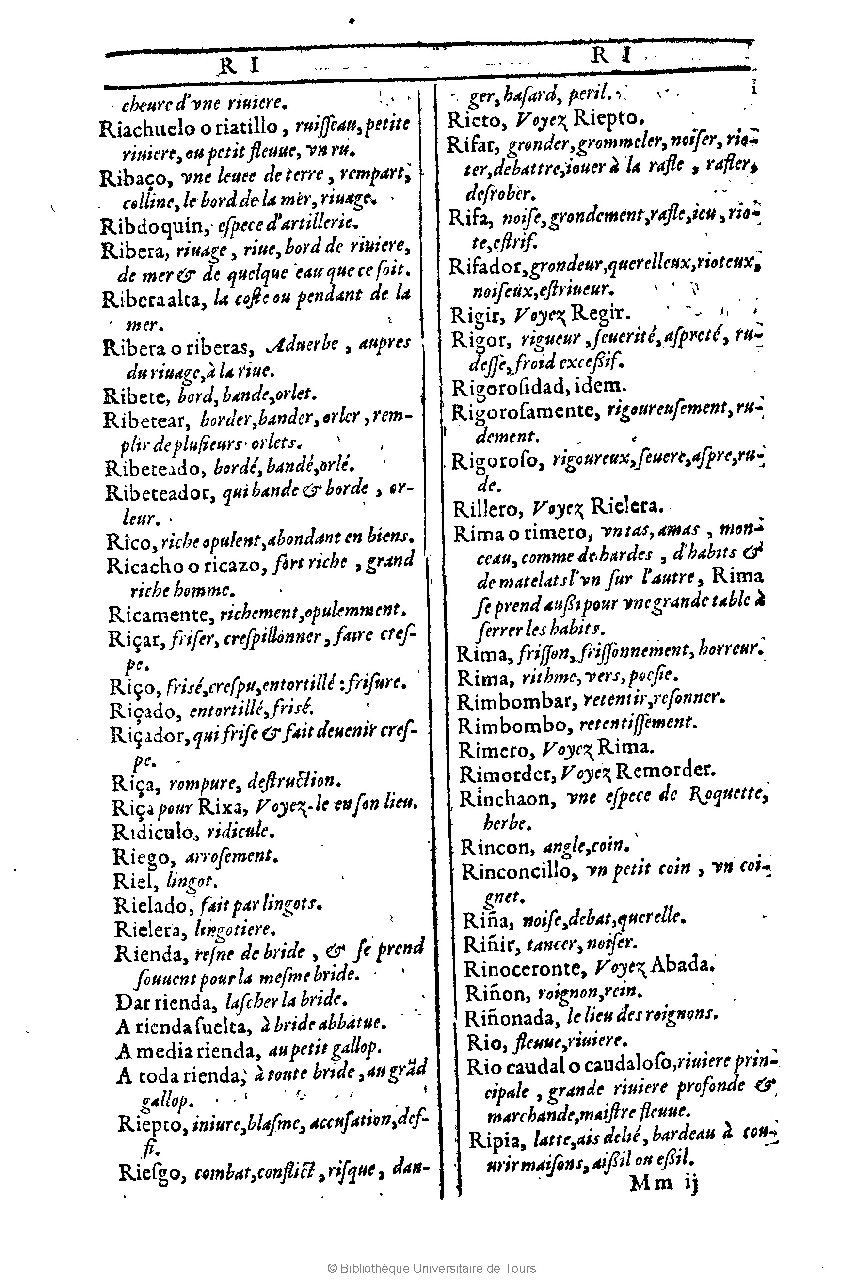 R I
cheure d'vne riuiere.
Riachuelo o riatillo, ruiſſeau, petite
riuiere, ou petit fleuue, vn ru.
Ribaço, vne leuee de terre, rempart,
colline, le bord de la mer, riuage.
Ribdoquin, eſpece d'artillerie.
Ribera, riuage, riue, bord de riuiere,
de mer & de quelque eau que ce ſoit.
Ribera alta, la coſte ou pendant de la
mer.
Ribera o riberas, Aduerbe, aupres
du riuage, à la riue.
Ribete, bord, bande, orlet.
Ribetear, border, bander, orler, rem-
plir de pluſieurs orlets.
Ribeteado, bordé, bandé, orlé.
Ribeteador, qui bande & borde, or-
leur.
Rico, riche opulent, abondant en biens.
Ricacho o ricazo, fort riche, grand
riche homme.
Ricamente, richement, opulemment.
Riçar, friſer, creſpillonner, faire creſ-
pe.
Riço, friſé, creſpu, entortillé : friſure.
Riçado, entortillé, friſé.
Riçador, qui friſe & fait deuenir creſ-
pe.
Riça, rompure, deſtruction.
Riça pour Rixa, Voyez-le en ſon lieu.
Ridiculo, ridicule.
Riego, arroſement.
Riel, lingot.
Rielado, fait par lingots.
Rielera, lingotiere.
Rienda, reſne de bride, & ſe prend
ſouuent pour la meſme bride.
Dar rienda, laſcher la bride.
A rienda ſuelta, à bride abbatue.
A media rienda, au petit gallop.
A toda rienda, à toute bride, au grãd
gallop.
Riepto, iniure, blaſme, accuſation, deſ-
fi.
Rieſgo, combat, conflict, riſque, dan-
R I
ger, haſard, peril.
Rieto, Voyez Riepto.
Rifar, gronder, grommeler, noiſer, rio-
ter, debattre, iouer à la rafle, rafler,
deſrober.
Rifa, noiſe, grondement, rafle, ieu, rio-
te, eſtrif.
Rifador, grondeur, querelleux, rioteux,
noiſeux, eſtriueur.
Rigir, Voyez Regir.
Rigor, rigueur, ſeuerité, aſpreté, ru-
deſſe, froid exceßif.
Rigoroſidad, idem.
Rigoroſamente, rigoureuſement, ru-
dement.
Rigoroſo, rigoureux, ſeuere, aſpre, ru-
de.
Rillero, Voyez Rielera.
Rima o rimero, vn tas, amas, mon-
ceau, comme de hardes, d'habits &
de matelats l'vn ſur l'autre, Rima
ſe prend außi pour vne grande table à
ſerrer les habits.
Rima, friſſon, friſſonnement, horreur.
Rima, rithme, vers, poeſie.
Rimbombar, retentir, reſonner.
Rimbombo, retentiſſement.
Rimero, Voyez Rima.
Rimorder, Voyez Remorder.
Rinchaon, vne eſpece de Roquette,
herbe.
Rincon, angle, coin.
Rinconcillo, vn petit coin, vn coi-
gnet.
Riña, noiſe, debat, querelle.
Riñir, tancer, noiſer.
Rinoceronte, Voyez Abada.
Riñon, roignon, rein.
Riñonada, le lieu des roignons.
Rio, fleuue, riuiere.
Rio caudal o caudaloſo, riuiere prin-
cipale, grande riuiere profonde &
marchande, maiſtre fleuue.
Ripia, latte, ais delié, bardeau à cou-
urir maiſons, aißil ou eßil.
Mm ij
© Bibliothèque Universitaire de Tours